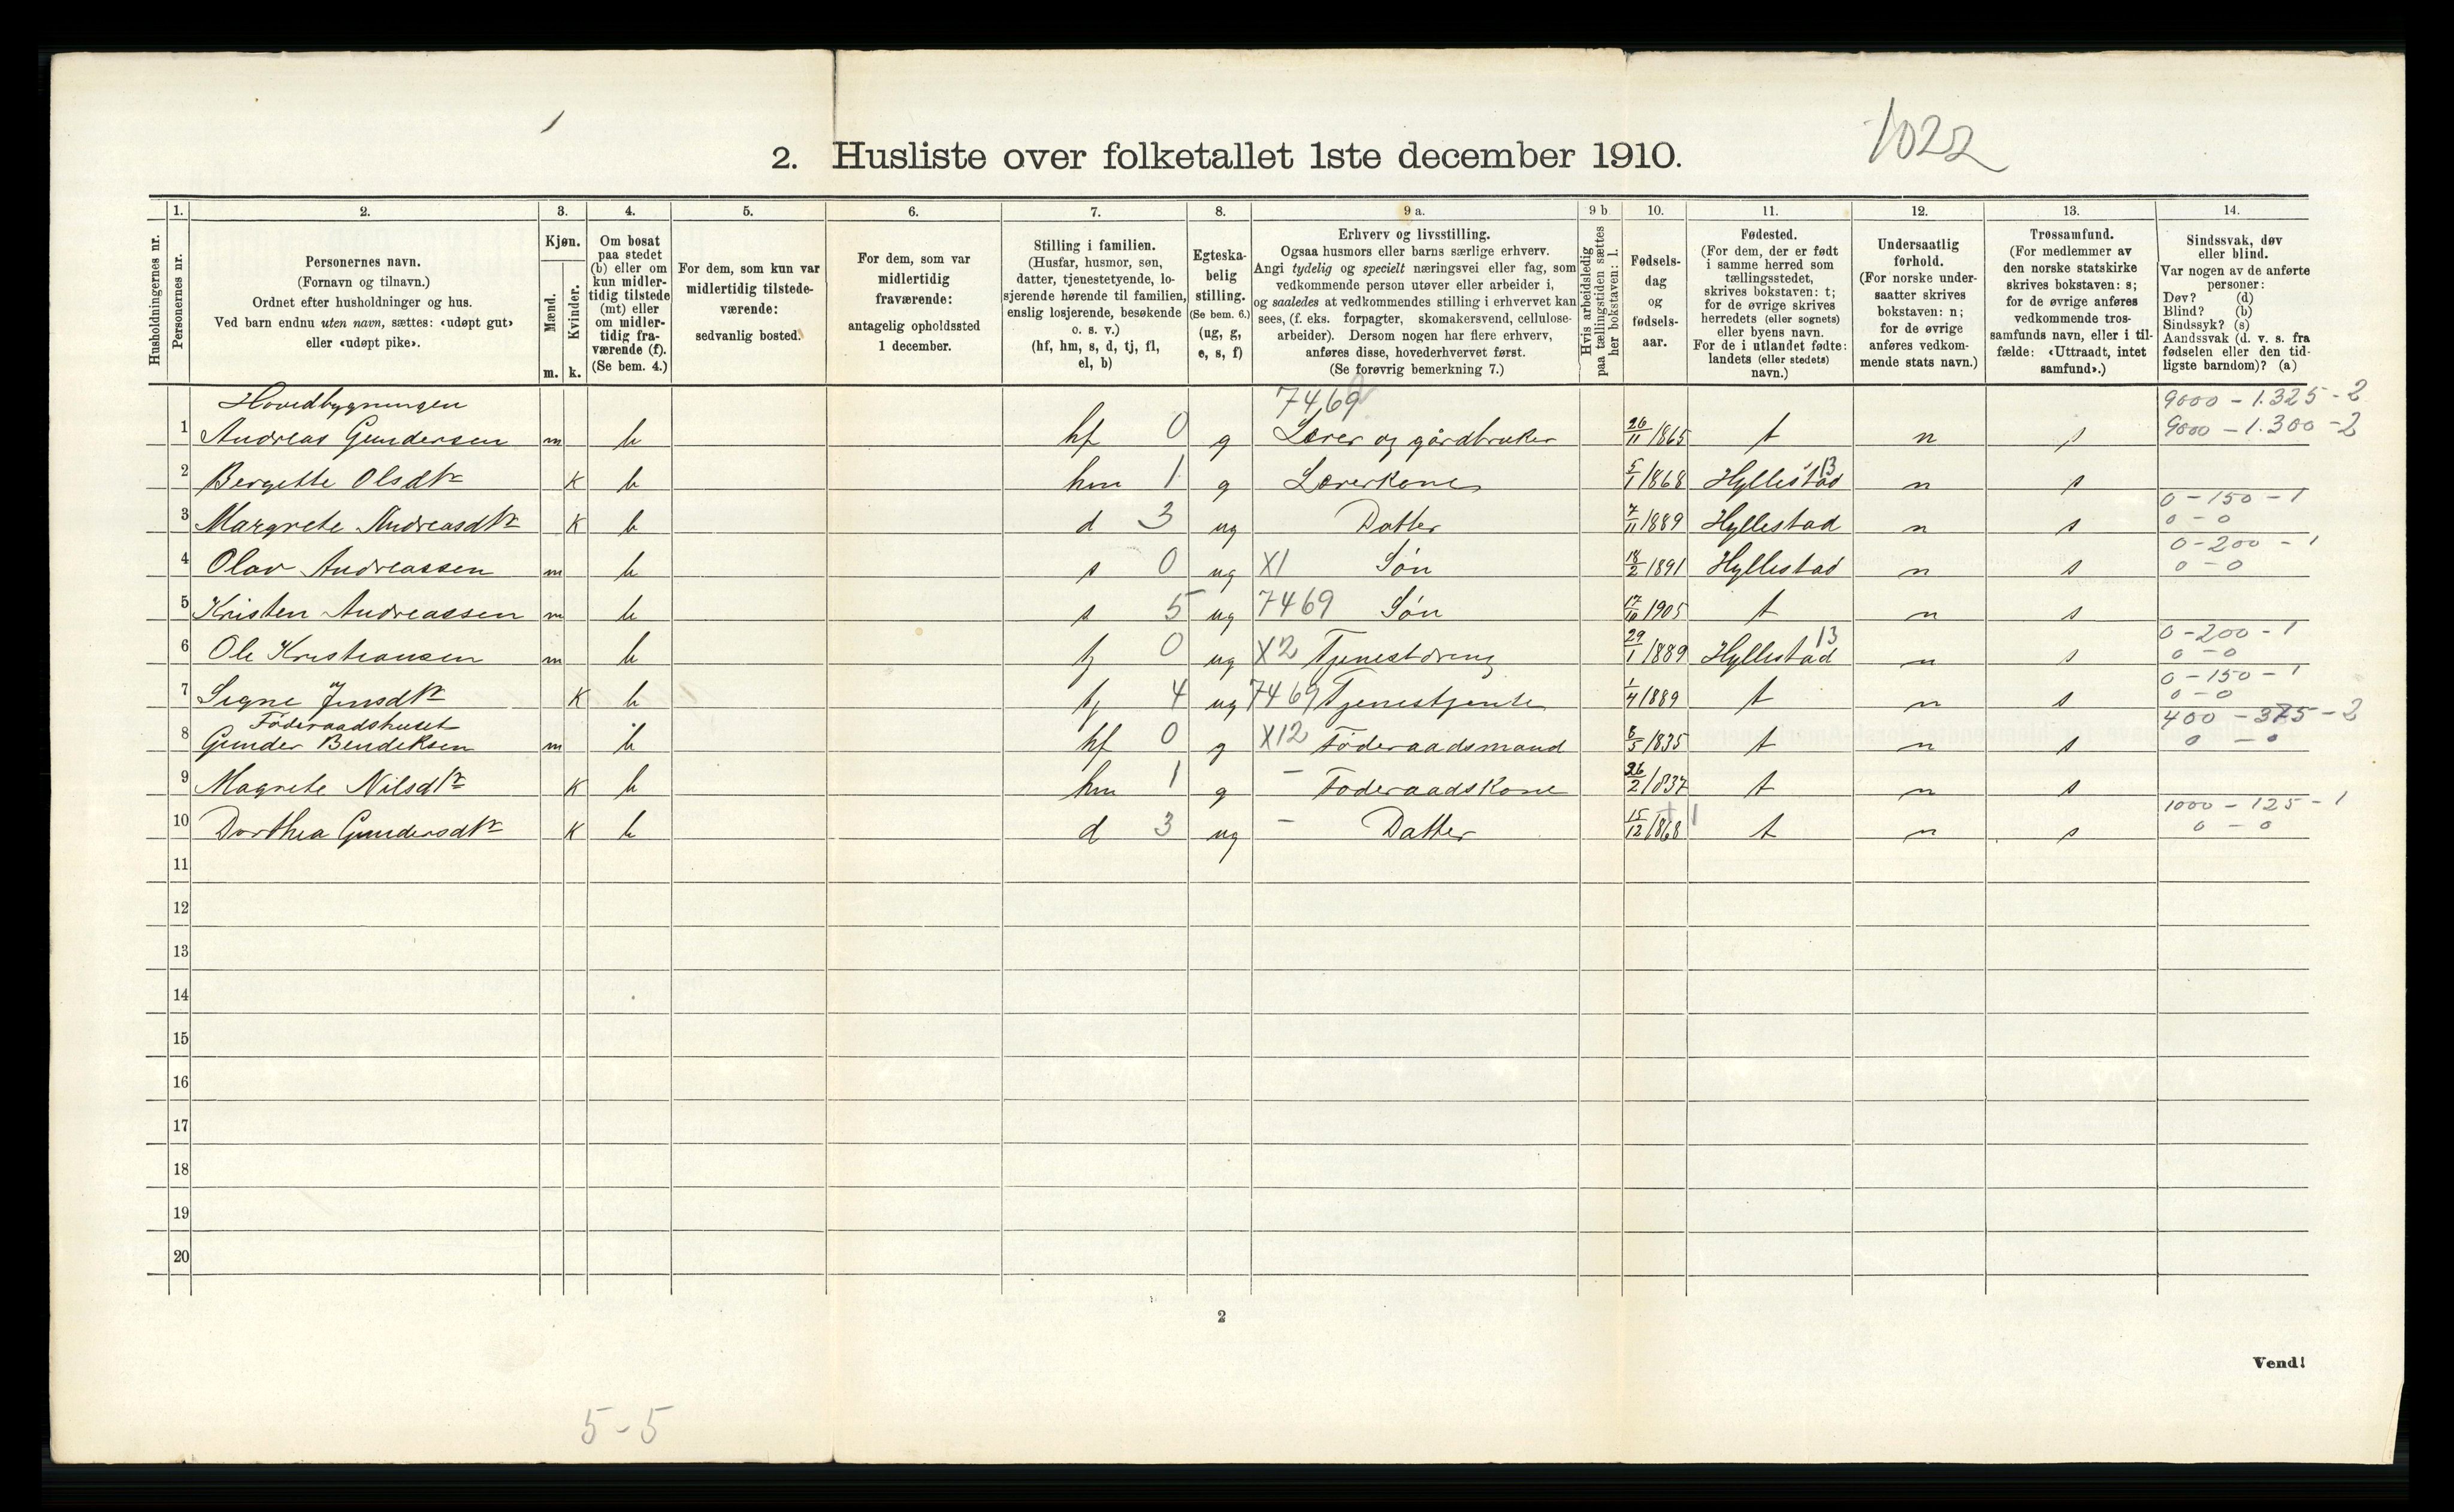 1
1022
2. Husliste over folketallet 1ste december 1910.
Husholdningernes nr.
1. Personernes nr.
2. Personernes navn.
(Fornavn og tilnavn.)
Ordnet efter husholdninger og hus.
Ved barn endnu uten navn, sættes: «udøpt gut»
eller «udøpt pike».
3. Kjøn.
Mænd. Kvinder.
m. k.
4. Om bosat
paa stedet
(b) eller om
kun midler-
tidig tilstede
(mt) eller
om midler-
tidig fra-
værende (f).
(Se bem. 4.)
5. For dem, som kun var
midlertidig tilstede-
værende:
sedvanlig bosted.
6. For dem, som var
midlertidig
fraværende:
antagelig opholdssted
1 december.
7. Stilling i familien.
(Husfar, husmor, søn,
datter, tjenestetyende, lo-
sjerende hørende til familien,
enslig losjerende, besøkende
o. s. v.)
(hf, hm, s, d, tj, fl,
el, b)
8. Egteska-
belig
stilling.
(Se bem. 6.)
(ug, g,
e, s, f)
9 a. Erhverv og livsstilling.
Ogsaa husmors eller barns særlige erhverv.
Angi tydelig og specielt næringsvei eller fag, som
vedkommende person utøver eller arbeider i,
og saaledes at vedkommendes stilling i erhvervet kan
sees, (f. eks. forpagter, skomakersvend, cellulose-
arbeider). Dersom nogen har flere erhverv,
anføres disse, hovederhvervet først.
(Se forøvrig bemerkning 7.)
9 b Hvis arbeidsledig
paa tællingstiden sættes
her bokstaven: l.
10. Fødsels-
dag
og
fødsels-
aar.
11. Fødested.
(For dem, der er født
i samme herred som
tællingsstedet,
skrives bokstaven: t;
for de øvrige skrives
herredets (eller sognets)
eller byens navn.
For de i utlandet fødte:
landets (eller stedets)
navn.)
12. Undersaatlig
forhold.
(For norske under-
saatter skrives
bokstaven: n;
for de øvrige
anføres vedkom-
mende stats navn.)
13. Trossamfund.
(For medlemmer av
den norske statskirke
skrives bokstaven: s;
for de øvrige anføres
vedkommende tros-
samfunds navn, eller i til-
fælde: «Uttraadt, intet
samfund».)
14. Sindssvak, døv
eller blind.
Var nogen av de anførte
personer:
Døv? (d)
Blind? (b)
Sindssyk? (s)
Aandssvak (d. v. s. fra
fødselen eller den tid-
ligste barndom)? (a)
Hovedbygningen 7469 9000 - 1.325 - 2
1 Andreas Gundersen m b hf 0 g Lærer og gårdbruker 26/11 1865 t n s 9000 - 1.300 - 2
2 Bergitte Olsdtr k b hm 1 g Lærerkone 5/1 1868 Hyllestad 13 n s
0 - 150 - 1
3 Margrete Andreasdtr k b d 3 ug Datter 7/11 1889 Hyllestad n s 0 - 0
0 - 200 - 1
4 Olav Andreassen m b s 0 ug X1 Søn 18/2 1891 Hyllestad n s 0 - 0
5 Kristen Andreassen m b s 5 ug 7469 Søn 17/10 1905 t n s
0 - 200 - 1
6 Ole Kristiansen m b tj 0 ug X2 Tjenestdreng 29/1 1889 Hyllestad 13 n s 0 - 0
0 - 150 - 1
7 Signe Jensdtr k b tj 4 ug 7469 Tjenestjente 1/4 1889 t n s 0 - 0
Føderaadshuset 400 - 375 - 2
8 Gunder Bendiksen m b hf 0 g X12 Føderaadsmand 8/5 1835 t n s 0 - 0
9 Magrete Nilsdtr k b hm 1 g - Føderaadskone 26/2 1837 t n s
1000 - 125 - 1
10 Dorthea Gundersdtr k b d 3 ug - Datter 15/12 1868 1 t n s 0 - 0
11
12
13
14
15
16
17
18
19
20
2
Vend!
5-5